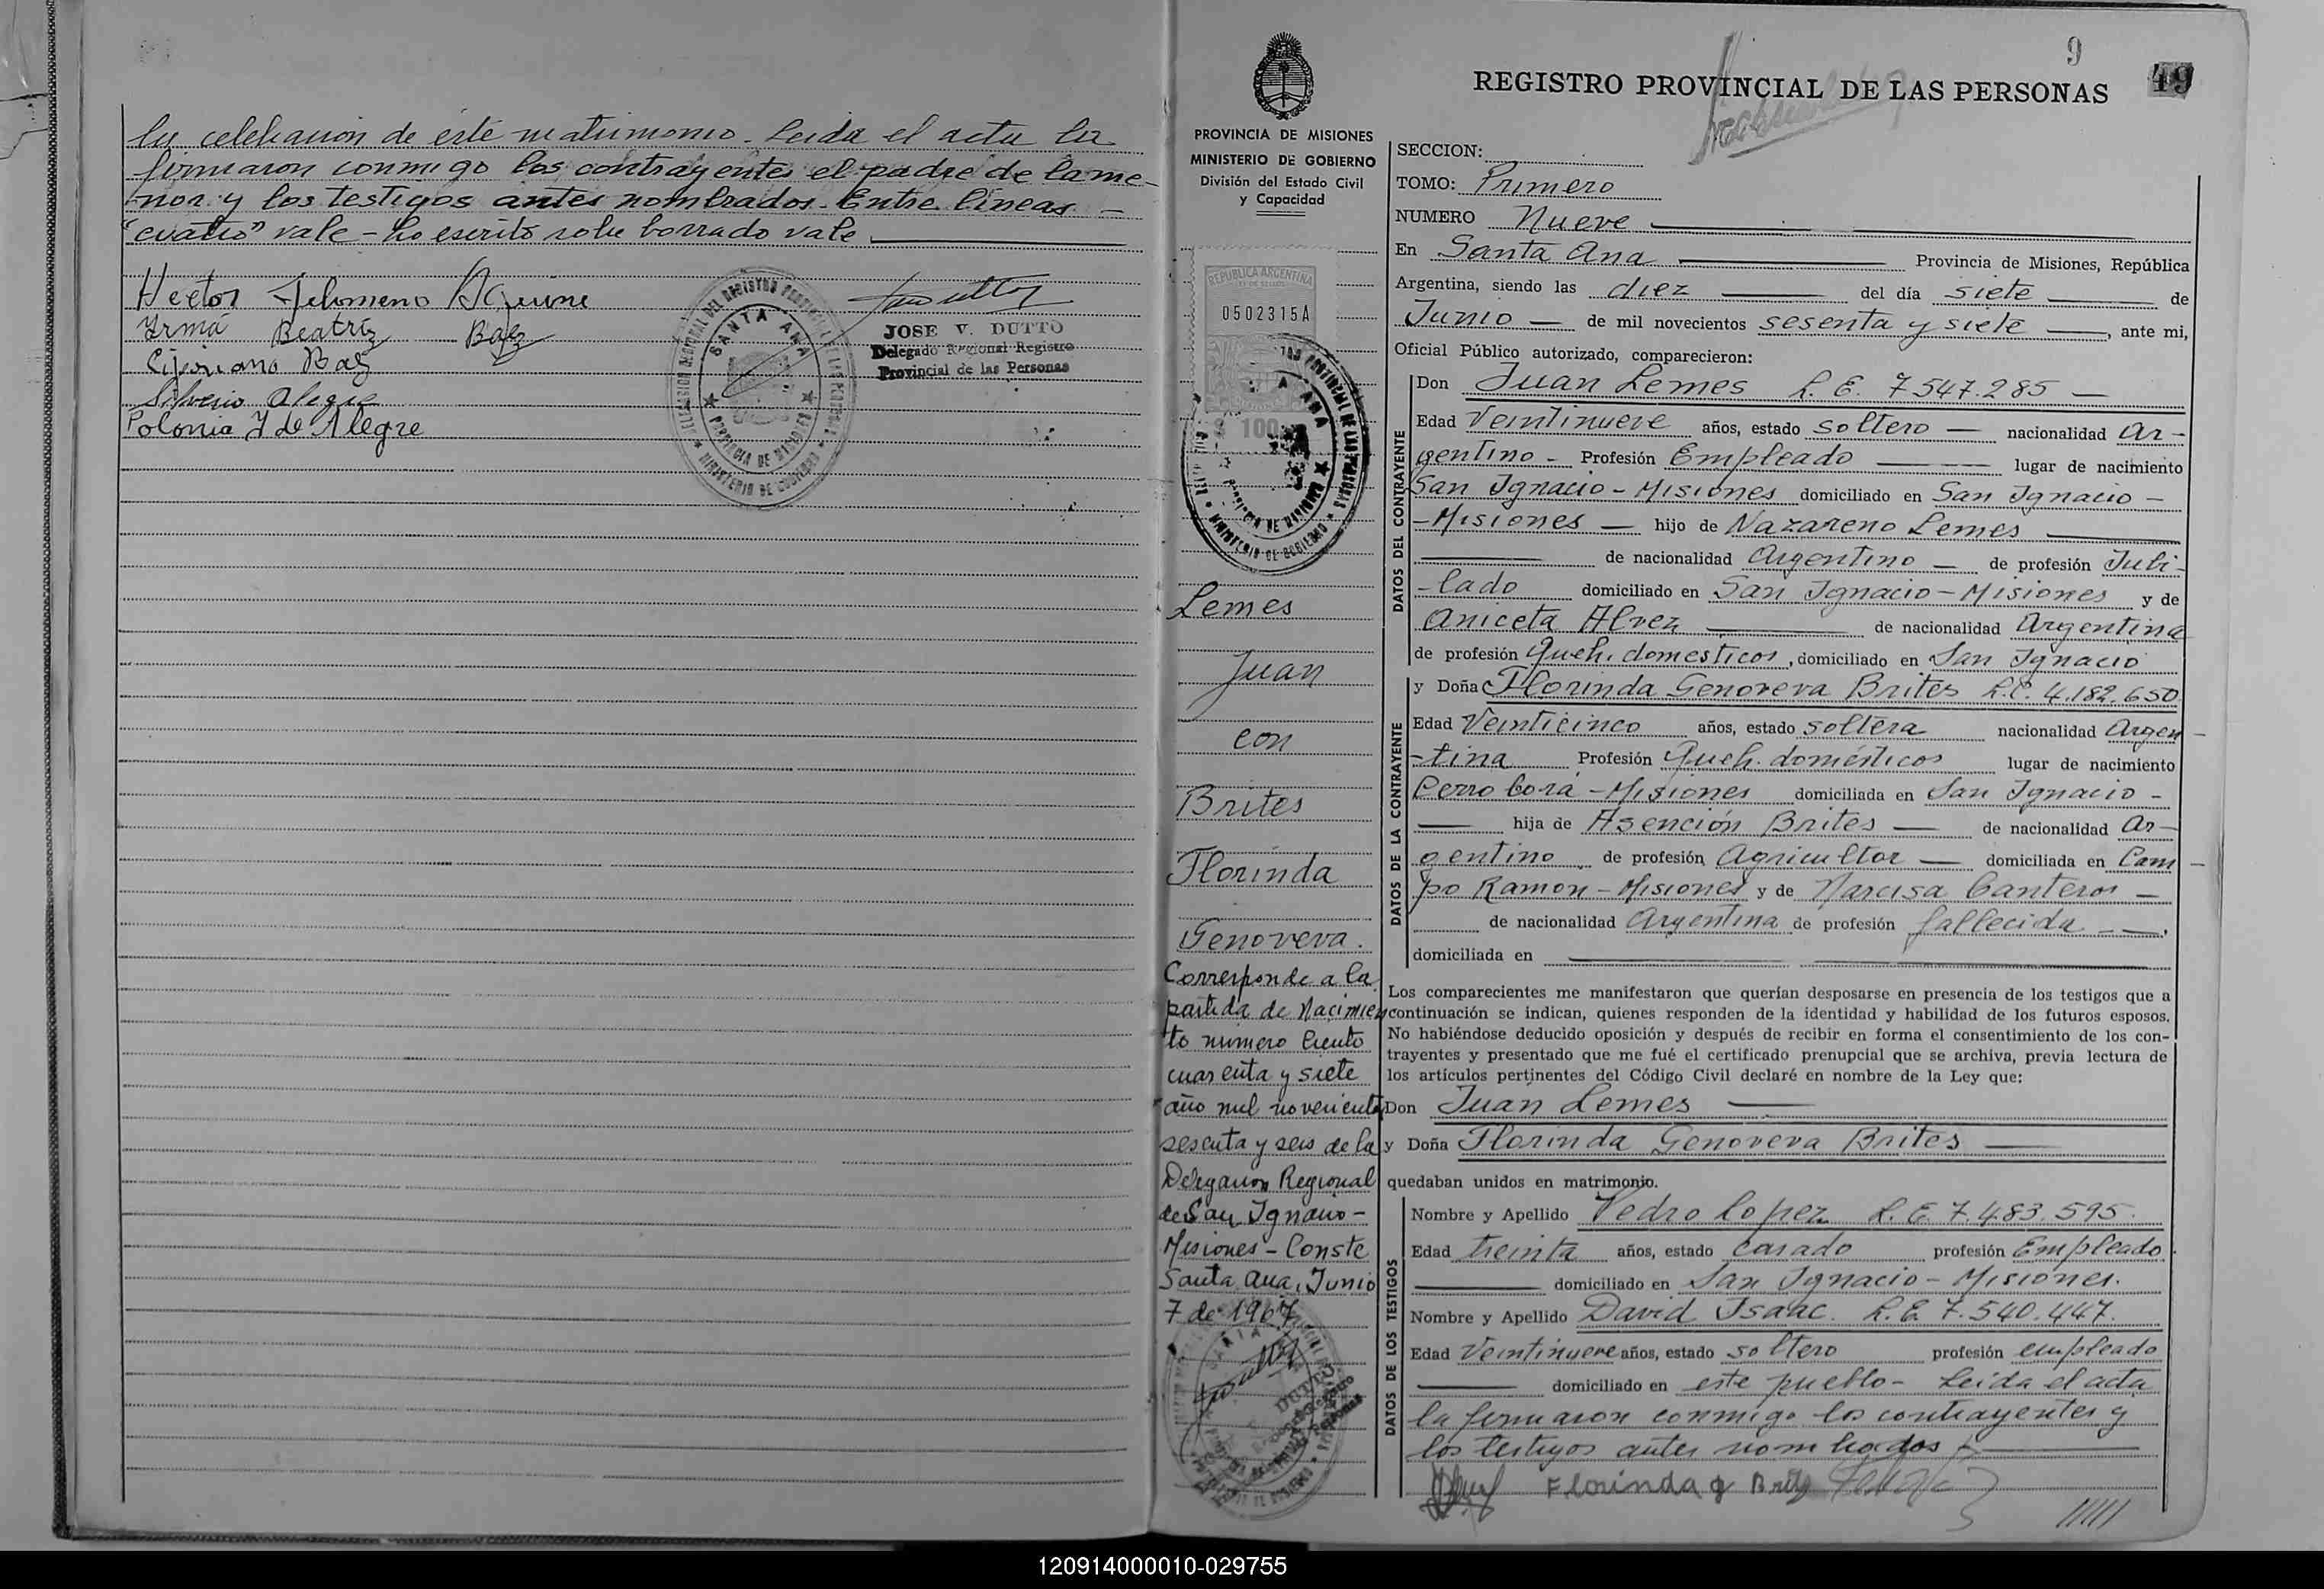 la celebración de este matrimonio. Leida el acta la
firmaron conmigo los contrayentes el padre de la me-
nor y los testigos antes nombrados. Entre lineas -
"cuatro" vale - Lo escrito sobre borrado vale
Hector Filomeno Aguirre
Irma Beatríz Baez
Cipriano Baez
Silverio Alegre
Polonia Y de Alegre
DELEGACION REGIONAL DEL REGISTRO PROVINCIAL DE LAS PERSONAS
SANTA ANA
PROVINCIA DE MISIONES
MINISTERIO DE GOBIERNO
JOSE V. DUTTO
Delegado Regional Registro
Provincial de las Personas
PROVINCIA DE MISIONES
MINISTERIO DE GOBIERNO
División del Estado Civil
y Capacidad
REPUBLICA ARGENTINA
0502315A
$ 100
Lemes
Juan
con
Brites
Florinda
Genoveva.
Corresponde a la
partida de Nacimien
to número Ciento
cuarenta y siete
año mil novecientos
sesenta y seis de la
Delegacion Regional
de San Ignacio -
Misiones - Conste
Santa Ana, Junio
7 de 1967.
9
49
REGISTRO PROVINCIAL DE LAS PERSONAS
SECCION:
TOMO: Primero
NUMERO Nueve
En Santa Ana Provincia de Misiones, República
Argentina, siendo las diez del día siete de
Junio de mil novecientos sesenta y siete, ante mi,
Oficial Público autorizado, comparecieron:
DATOS DEL CONTRAYENTE
Don Juan Lemes L. E. 7.547.285
Edad Veintinueve años, estado soltero nacionalidad Ar-
gentino - Profesión Empleado lugar de nacimiento
San Ignacio - Misiones domiciliado en San Ignacio -
- Misiones hijo de Nazareno Lemes
de nacionalidad Argentino de profesión Jubi-
-lado domiciliado en San Ignacio - Misiones y de
Aniceta Alvez de nacionalidad Argentina
de profesión Queh. domesticos, domiciliado en San Ignacio
DATOS DE LA CONTRAYENTE
y Doña Florinda Genoveva Brites L.C. 4.182.650
Edad Veinticinco años, estado soltera nacionalidad Argen-
-tina Profesión Queh. domésticos lugar de nacimiento
Cerro Corá - Misiones domiciliada en San Ignacio -
hija de Asención Brites de nacionalidad Ar-
gentino de profesión Agricultor domiciliada en Cam-
po Ramon - Misiones y de Narcisa Canteros -
de nacionalidad Argentina de profesión fallecida
domiciliada en
Los comparecientes me manifestaron que querían desposarse en presencia de los testigos que a
continuación se indican, quienes responden de la identidad y habilidad de los futuros esposos.
No habiéndose deducido oposición y después de recibir en forma el consentimiento de los con-
trayentes y presentado que me fué el certificado prenupcial que se archiva, previa lectura de
los artículos pertinentes del Código Civil declaré en nombre de la Ley que:
Don Juan Lemes
y Doña Florinda Genoveva Brites
quedaban unidos en matrimonio.
DATOS DE LOS TESTIGOS
Nombre y Apellido Pedro Lopez L. E. 7.483.595.
Edad treinta años, estado casado profesión Empleado
domiciliado en San Ignacio - Misiones.
Nombre y Apellido David Isaac. L. E. 7.540.447.
Edad Veintinueve años, estado soltero profesión empleado
domiciliado en este pueblo - Leida el acta
la firmaron conmigo los contrayentes y
los testigos antes nombrados
Florinda g Brites
120914000010-029755